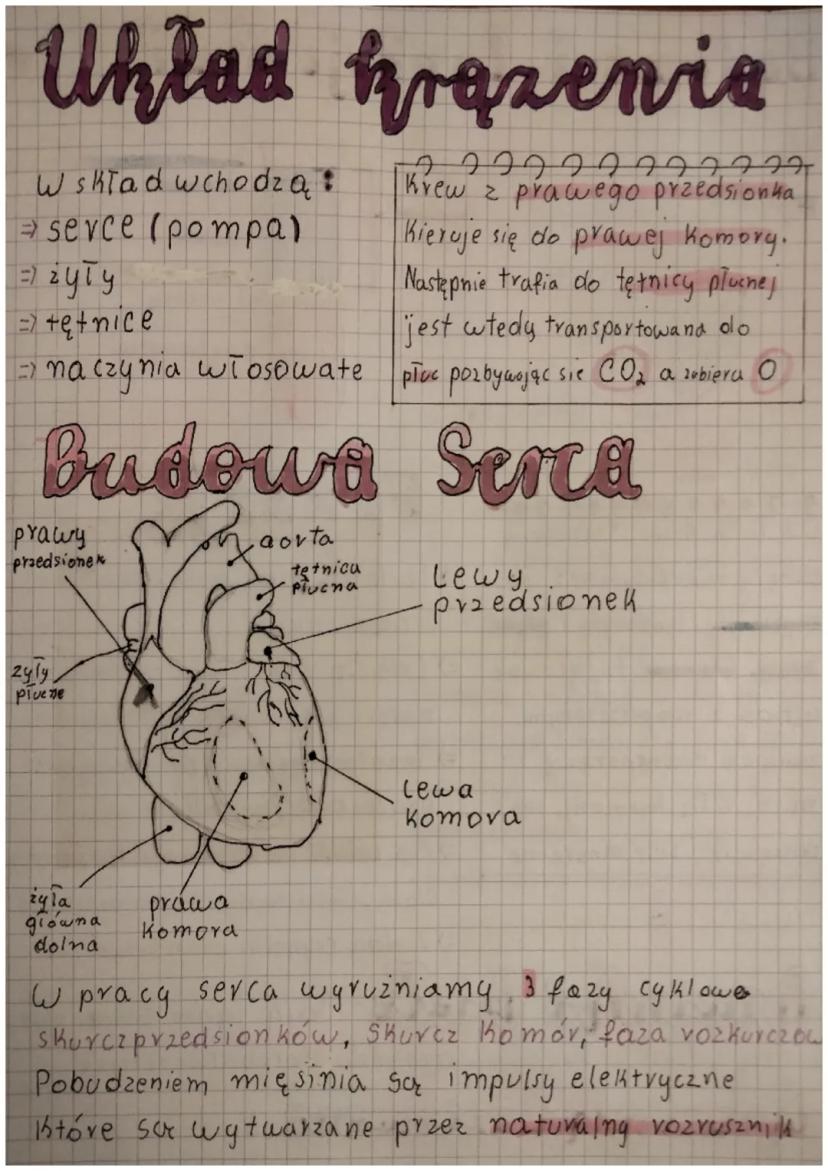 Układ krążenia
W skład wchodzą:
⇒ serce (pompa)
⇒ żyły
⇒ tętnice
⇒ naczynia włosowate
Krew z prawego przedsionka
Kieruje się do prawej Komory.
Następnie trafia do tętnicy płucnej
jest wtedy transportowana do
płuc pozbywając się CO₂ a zabiera O
Budowa Serca
prawy
przedsionek
aorta
tętnica
płucna
Lewy
przedsionek
żyły
płucne
Lewa
Komora
żyła
główna
dolna
prawa
Komora
W pracy serca wyrużniamy 3 fazy cyklowe
skurcz przedsionków, Skurcz Komór, faza rozkurczow
Pobudzeniem mięsinia są impulsy elektryczne
Które są wytwarzane przez naturalny rozrusznik